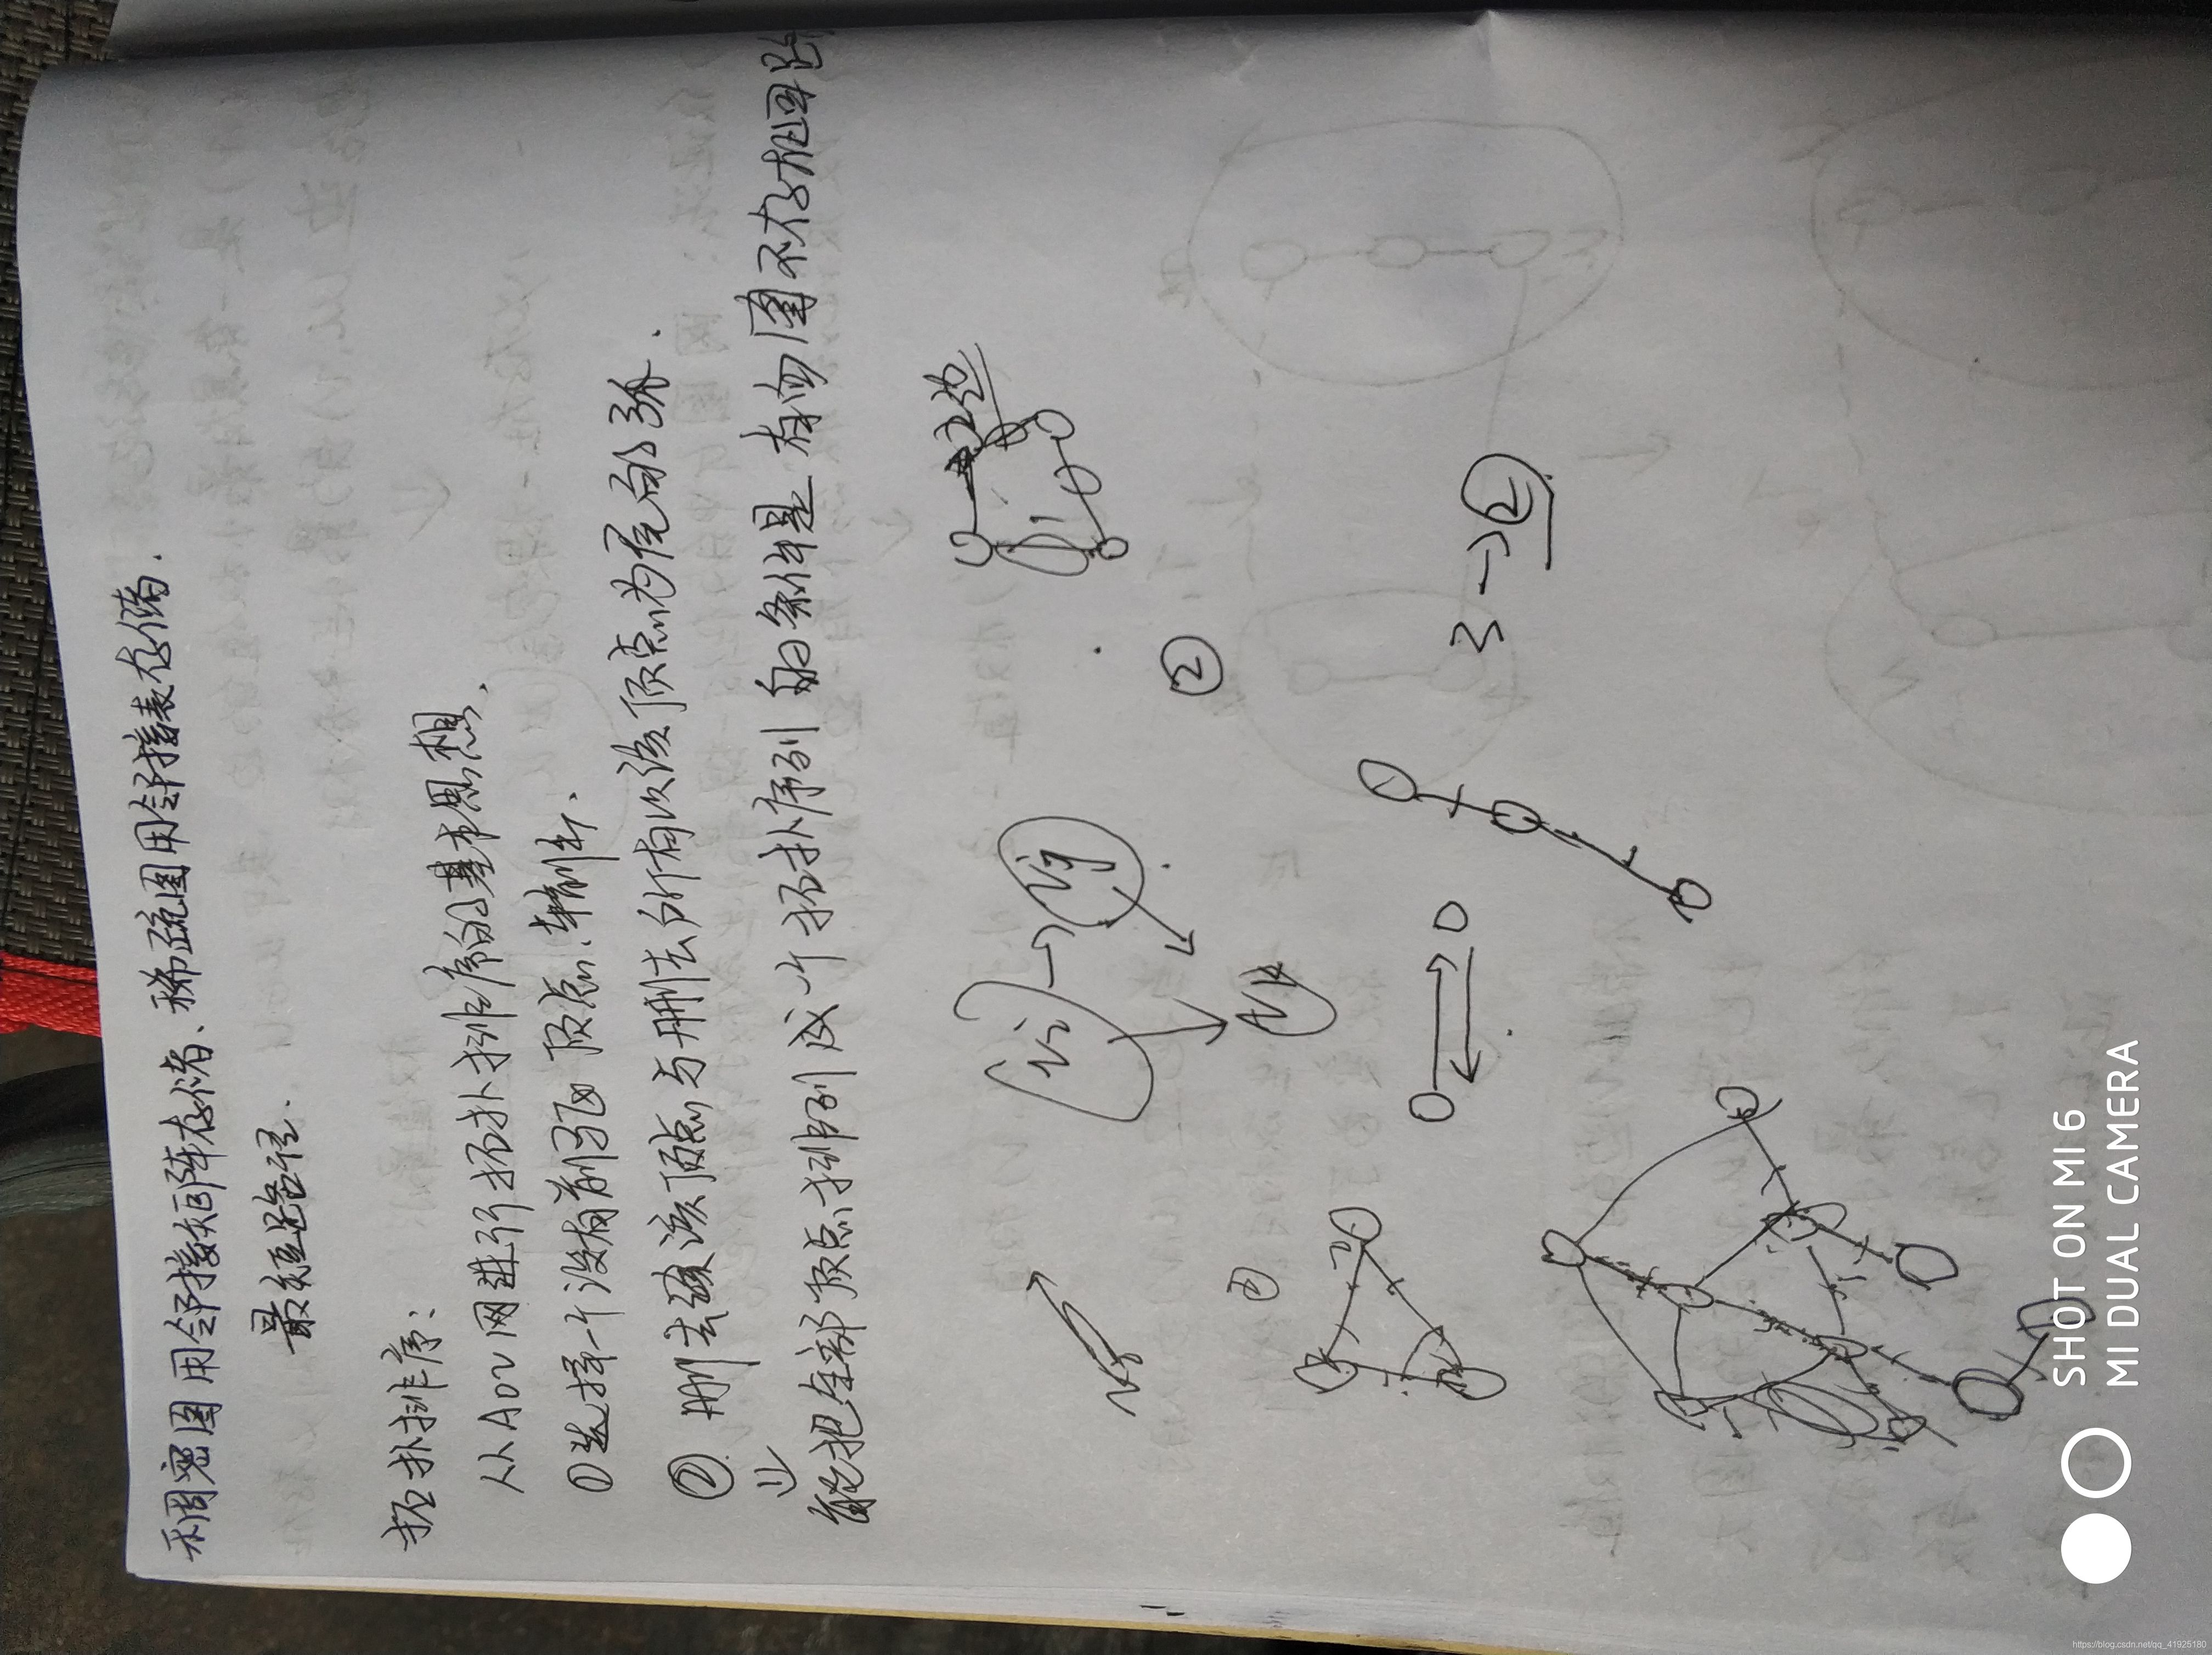 稠密图用邻接矩阵存储、稀疏图用邻接表存储.
最短路径.
拓扑排序:
从AOV网进行拓扑排序的基本思想.
①选择一个没有前驱顶点.输出.
② 删去该顶点与删去所有以该顶点为尾的弧.
能把全部顶点排列成一个拓扑序列的条件是有向图不存在回路
Vi
Vj
Vk
①
②
3→②
SHOT ON MI 6
MI DUAL CAMERA
https://blog.csdn.net/qq_41925180